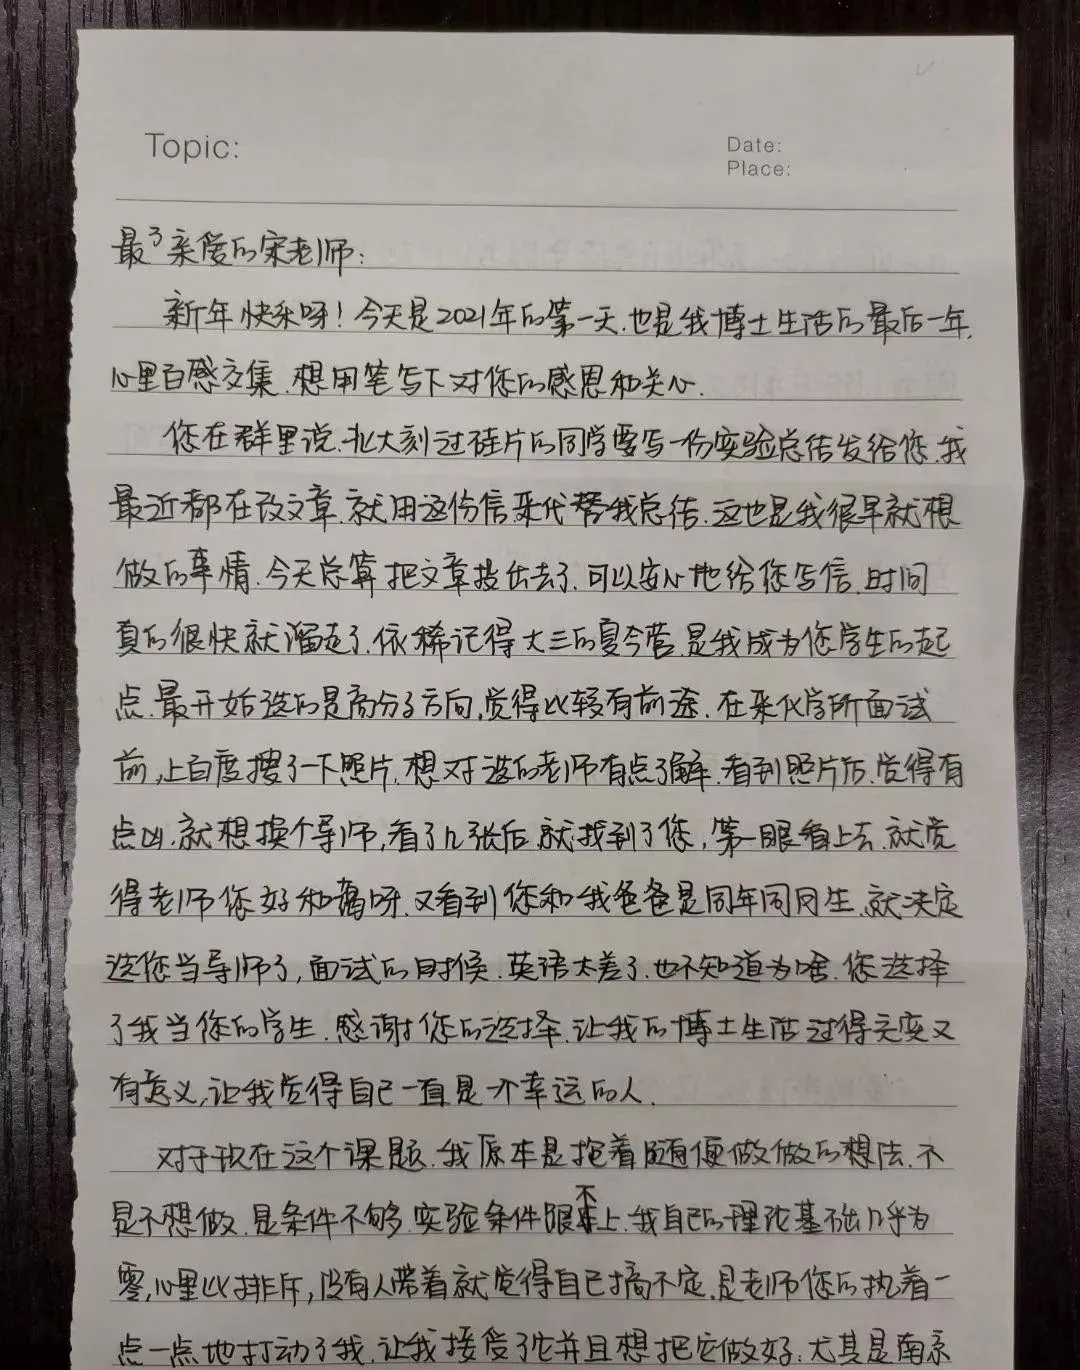 Topic:
Date:
Place:
最了亲爱的宋老师:
新年快乐呀!今天是2021年的第一天.也是我博士生活的最后一年,
心里百感交集.想用笔写下对您的感恩和关心.
您在群里说.北大刻过硅片的同学要写一份实验总结发给您.我
最近都在改文章.就用这份信来代替我总结.这也是我很早就想
做的事情.今天总算把文章投出去了.可以安心地给您写信.时间
真的很快就溜走了.依稀记得大三的夏令营.是我成为您学生的起
点.最开始选的是高分子方向,觉得比较有前途.在来化学所面试
前,上百度搜了一下照片.想对选的老师有点了解.看到照片后.觉得有
点凶.就想换个导师,看了几张后.就找到了您,第一眼看上去.就觉
得老师您好和蔼呀.又看到您和我爸爸是同年同月生.就决定
选您当导师了,面试的时候.英语太差了.也不知道为啥.您选择
了我当您的学生.感谢您的选择.让我的博士生活过得充实又
有意义,让我觉得自己一直是一个幸运的人.
对于现在这个课题.我原本是抱着随便做做的想法.不
是不想做.是条件不够.实验条件跟不上.我自己的理论基础几乎为
零,心里比排斥,没有人带着就觉得自己搞不定.是老师您的执着一
点一点地打动了我.让我接受了它并且想把它做好.尤其是南京